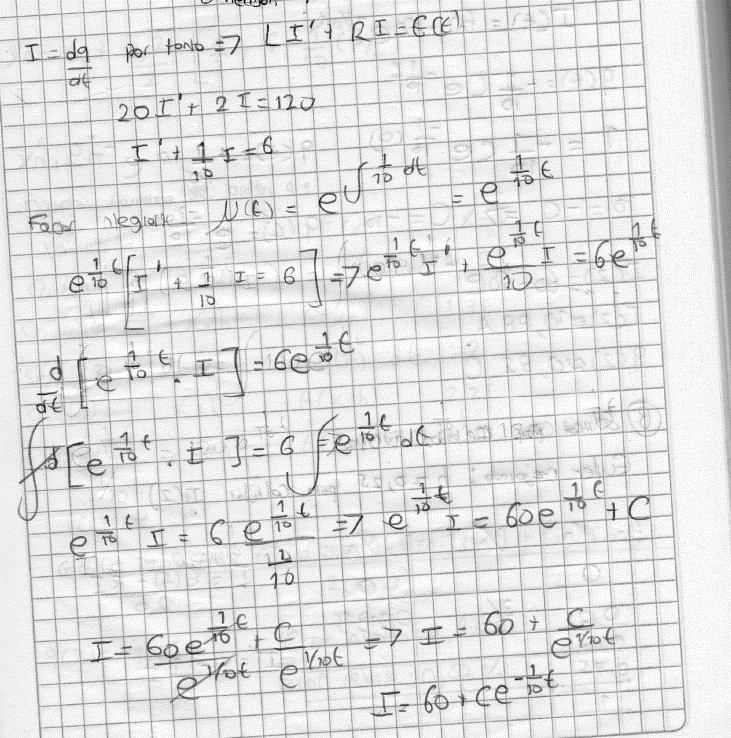 I = dq/dt por tanto => LI' + RI = E(t)
20I' + 2I = 120
I' + 1/10 I = 6
μ(t) = e^∫ 1/10 dt = e^1/10 t
e^1/10 t [I' + 1/10 I = 6] => e^1/10 t I' + e^1/10 t/10 I = 6e^1/10 t
d/dt [e^1/10 t . I] = 6e^1/10 t
∫d[e^1/10 t . I] = 6 ∫e^1/10 t dt
e^1/10 t I = 6 e^1/10 t / 1/10 => e^1/10 t I = 60e^1/10 t + C
I = 60e^1/10 t / e^1/10t + C / e^1/10t => I = 60 + C / e^1/10t
I = 60 + Ce^-1/10 t